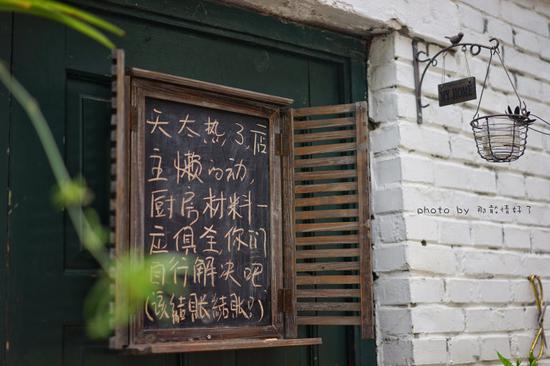 天太热了,店
主懒的动,
厨房材料一
应俱全你们
自行解决吧
(该结账结账。)
photo by 那就情好了